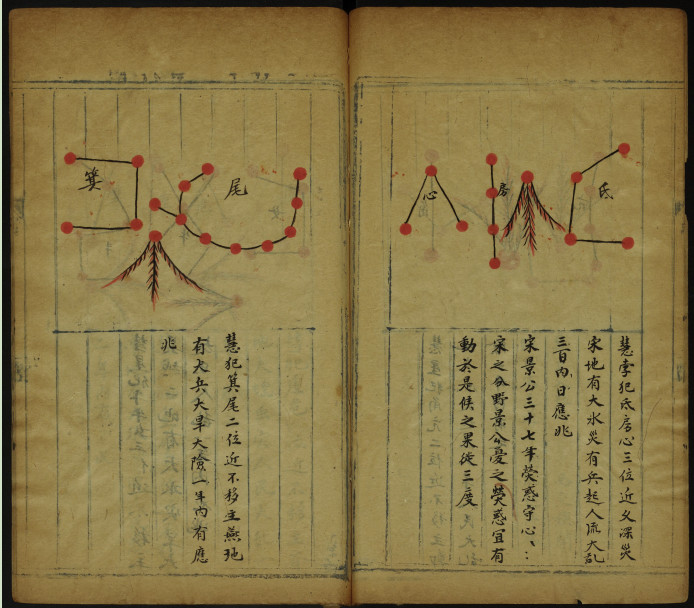 氐
房
心
彗孛犯氐房心三位近久深災
宋地有大水災有兵起人流大乱
三百内日應兆
宋景公三十七年熒惑守心〻
宋之分野景公憂之熒惑宜有
動於是候之果徙三度
尾
箕
彗犯箕尾二位近不移主燕地
有大兵大旱大險一年内有應
兆